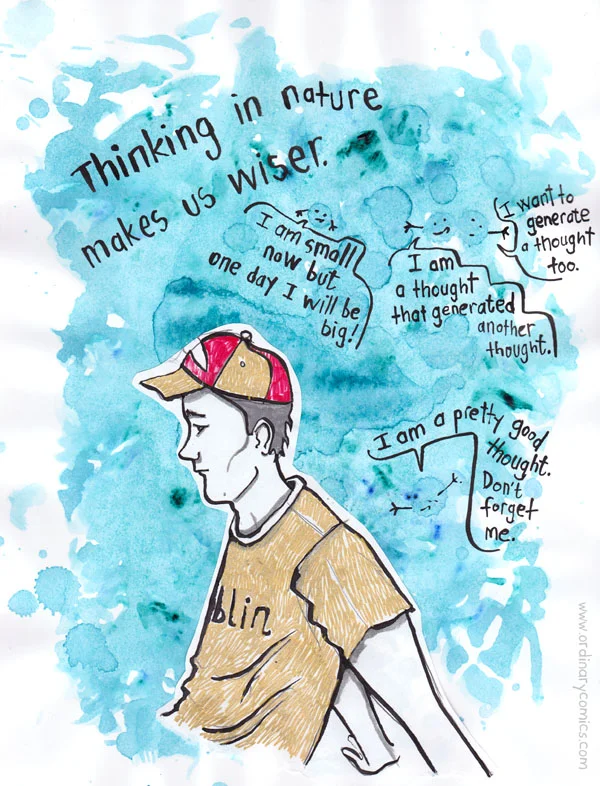 Thinking in nature
makes us wiser.
I am small
now but
one day I will be
big!
I am
a thought
that generated
another
thought.
I want to
generate
a thought
too.
I am a pretty good
thought.
Don't
forget
me.
blin
www.ordinarycomics.com